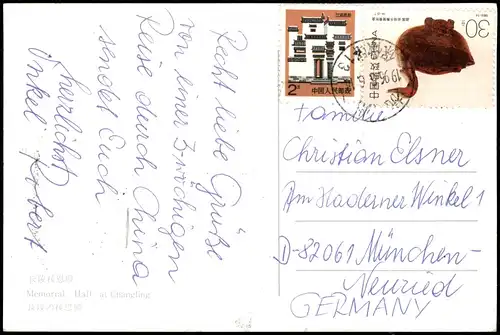 Recht liebe Grüße
von einer 3-wöchigen
Reise durch China
sendet Euch
herzlichst
Onkel Robert
Memorial Hall at Guangling
2分
中国人民邮政
30分
Familie
Christian Elsner
Am Haderner Winkel 1
D-82061 München-
Neuried
GERMANY